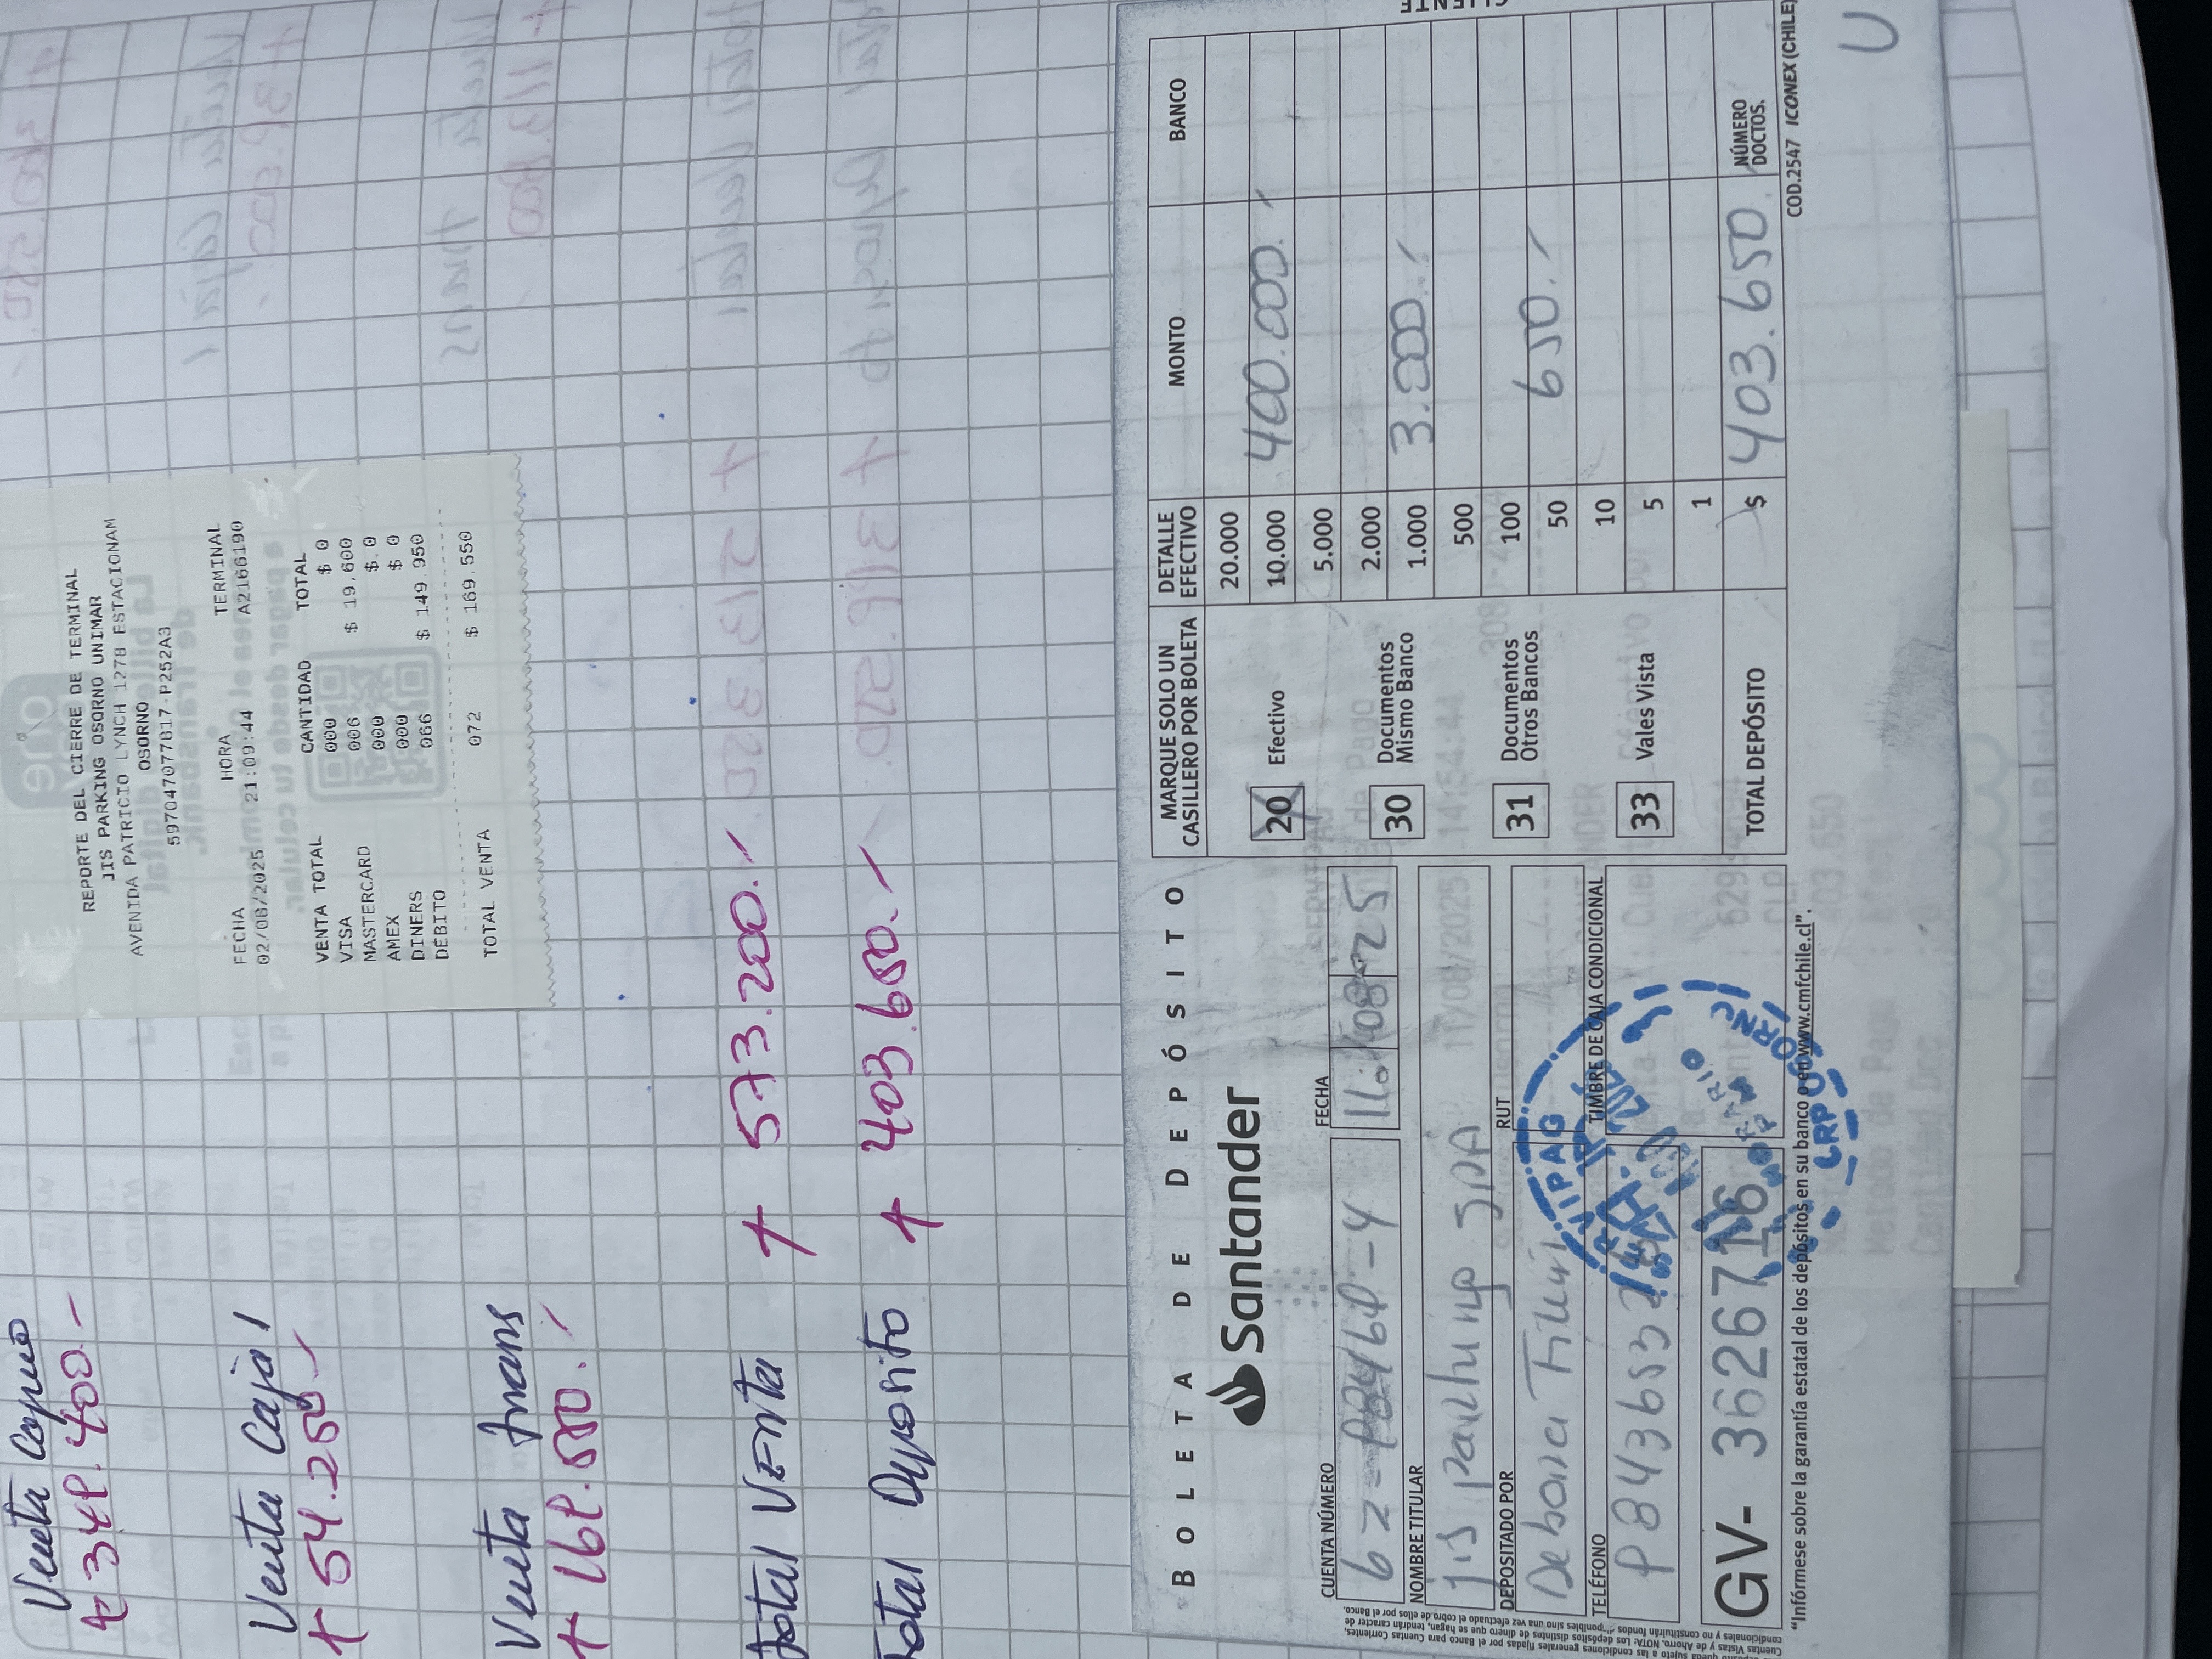 Venta Copec
+ 349.400.-
Venta Caja 1
+ 54.250.-
Venta Trans
+ 169.550.-
Total Venta + 573.200.-
Total Deposito + 403.650.-
REPORTE DEL CIERRE DE TERMINAL
JIS PARKING OSORNO UNIMAR
AVENIDA PATRICIO LYNCH 1278 ESTACIONAM
OSORNO
597047077817-P252A3
FECHA HORA TERMINAL
02/08/2025 21:09:44 A2166190
CANTIDAD TOTAL
VENTA TOTAL 000 $ 0
VISA 006 $ 19.600
MASTERCARD 000 $ 0
AMEX 000 $ 0
DINERS 066 $ 149.950
DEBITO
TOTAL VENTA 072 $ 169.550
BOLETA DE DEPÓSITO
Santander
CUENTA NÚMERO FECHA
11 08 25
NOMBRE TITULAR
JIS Parking SPA
DEPOSITADO POR RUT
TELÉFONO TIMBRE DE CAJA CONDICIONAL
GV- 3626716
MARQUE SOLO UN CASILLERO POR BOLETA
20 Efectivo
30 Documentos Mismo Banco
31 Documentos Otros Bancos
33 Vales Vista
TOTAL DEPÓSITO $ 403.650.
DETALLE EFECTIVO MONTO BANCO
20.000
10.000 400.000.
5.000
2.000
1.000 3.000.
500
100 650.
50
10
5
1
NÚMERO DOCTOS.
COD.2547 ICONEX (CHILE)
CLIENTE
"Infórmese sobre la garantía estatal de los depósitos en su banco o en www.cmfchile.cl".